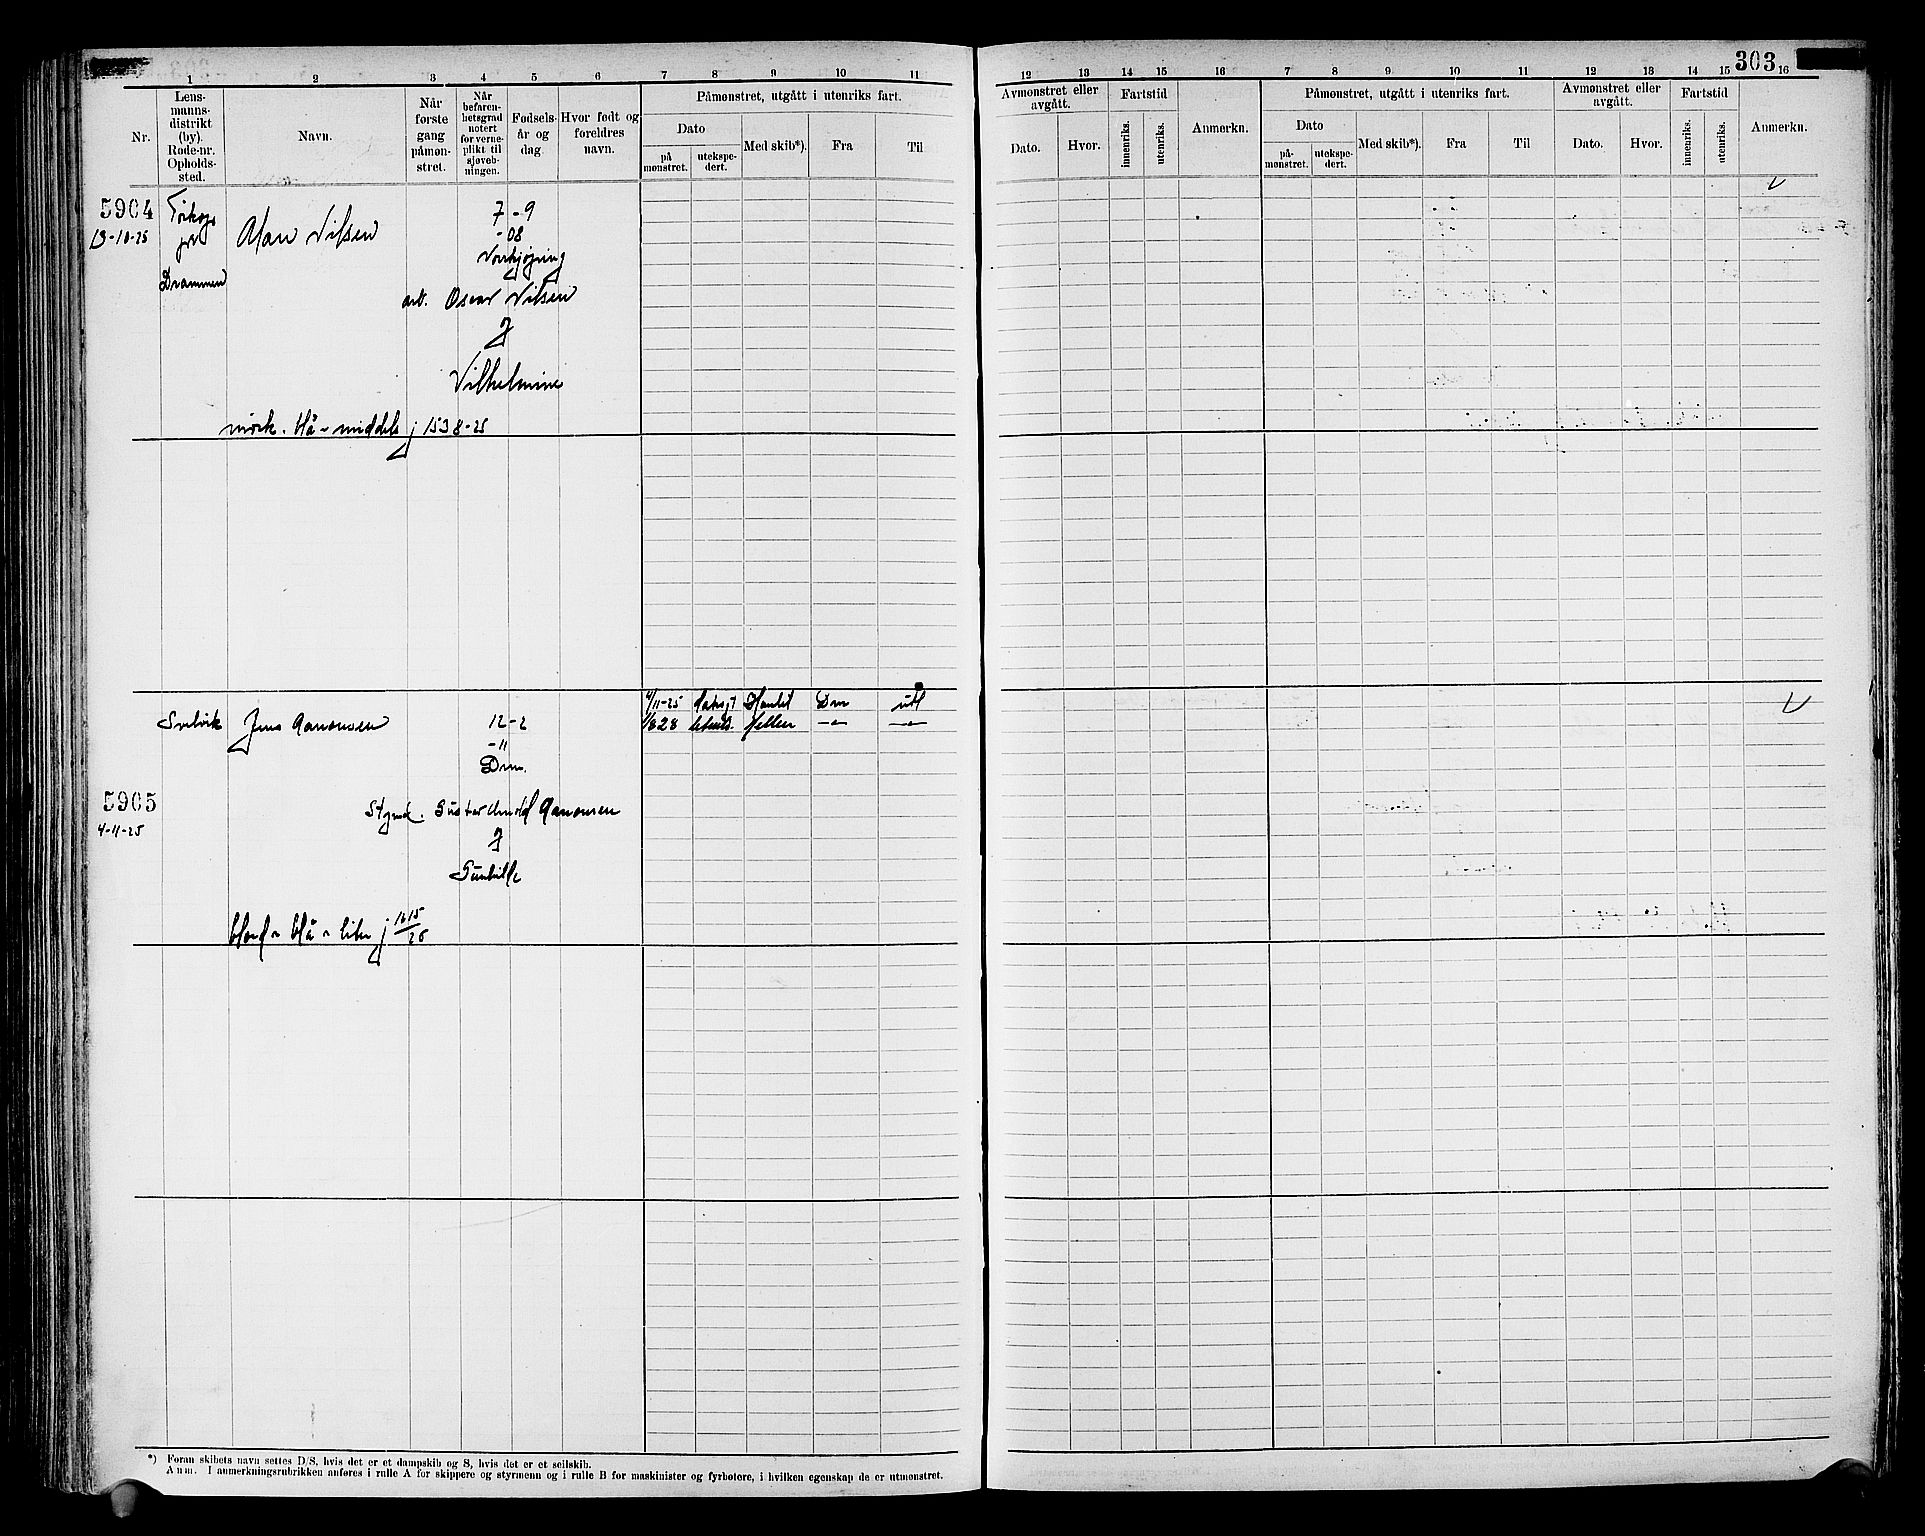 303
1 2 3 4 5 6 7 8 9 10 11
Nr.
Lens-
manns-
distrikt
(by).
Rode-nr.
Opholds-
sted.
Navn.
Når
første
gang
påmøn-
stret.
Når
befaren-
hetsgrad
notert
for verne-
plikt til
sjøveb-
ningen.
Fødsels-
år og
dag.
Hvor født og
foreldres
navn.
Påmønstret, utgått i utenriks fart.
Dato
på-
mønstret.
utekspe-
dert.
Med skib*).
Fra
Til
12 13 14 15 16 7 8 9 10 11 12 13 14 15 16
Avmønstret eller
avgått.
Dato.
Hvor.
Fartstid
innenriks.
utenriks.
Anmerkn.
Påmønstret, utgått i utenriks fart.
Dato
på-
mønstret.
utekspe-
dert.
Med skib*).
Fra
Til
Avmønstret eller
avgått.
Dato.
Hvor.
Fartstid
innenriks.
utenriks.
Anmerkn.
5904
13-10-25
Drammen
Alan Nilsen
7-9
-08
arb. Oscar Nilsen
Vilhelmine
mørk. blå - middels j 1538-25
Svelvik
Jens Aanonsen
12-2
-11
Drm.
4/11-25 Hamlet Drm utl
5905
4-11-25
Styrmd. Gustav Arnold Aanonsen
Gunhilde
blond - blå - liten j 1615/25
*) Foran skibets navn settes D/S, hvis det er et dampskib og S, hvis det er et seilskib.
Anm. I anmerkningsrubrikken anføres i rulle A for skippere og styrmenn og i rulle B for maskinister og fyrbøtere, i hvilken egenskap de er utmønstret.